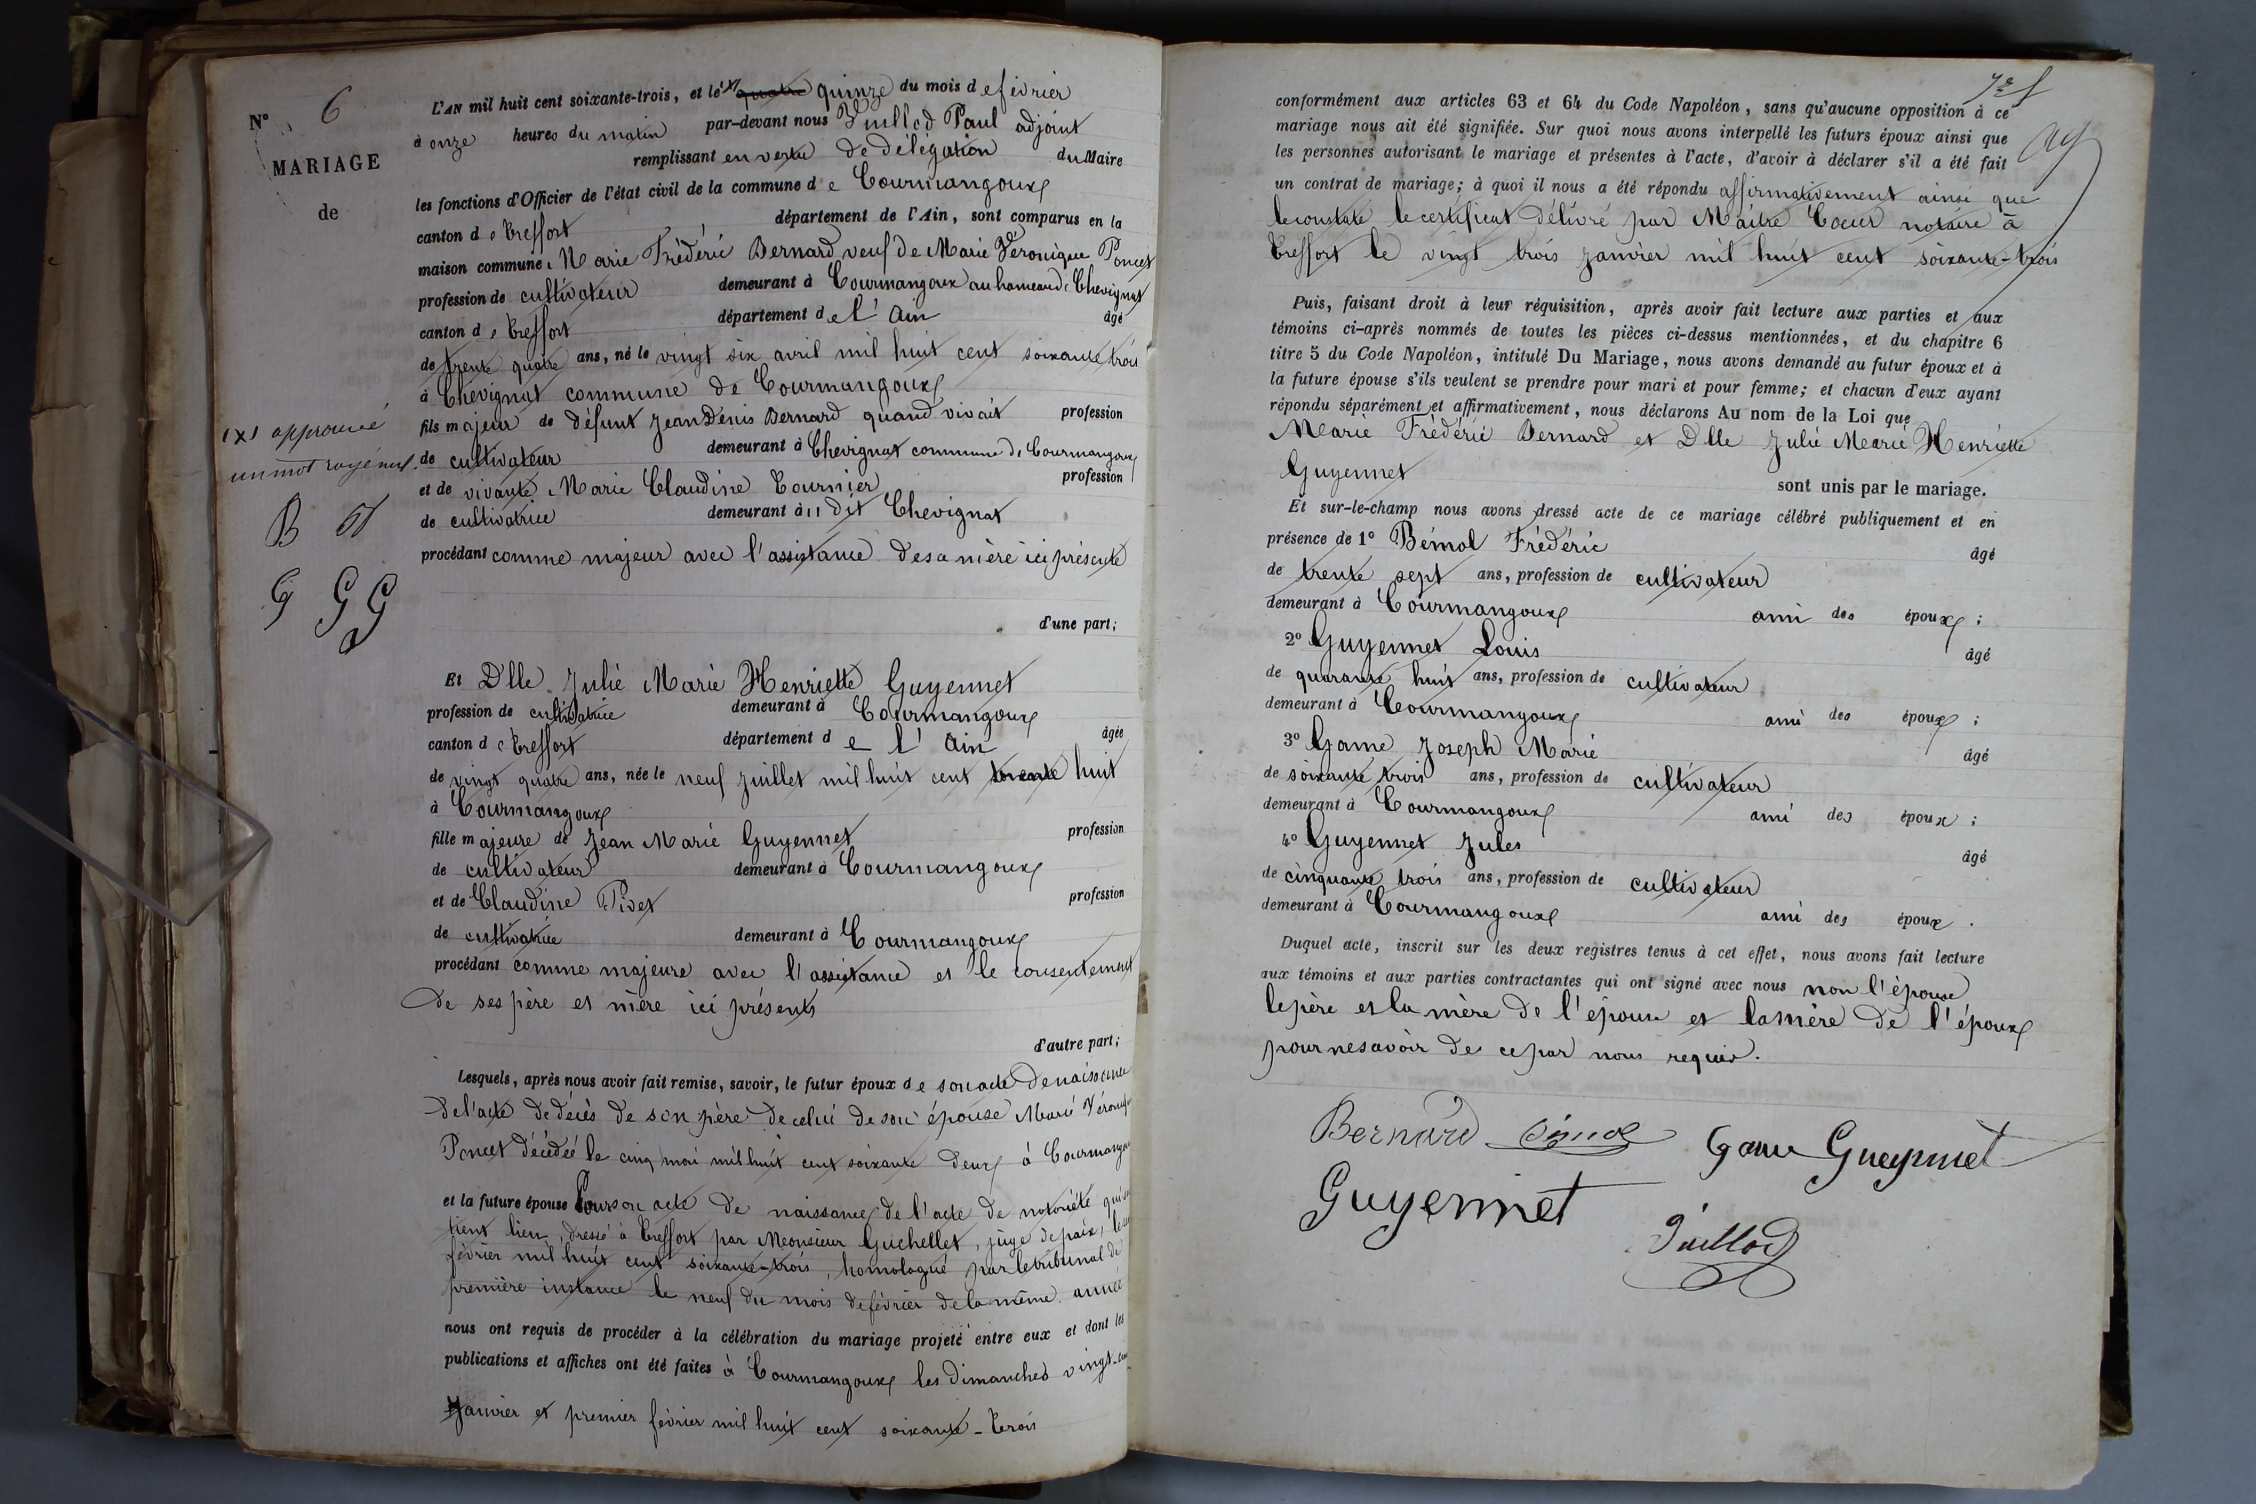 N° 6
MARIAGE
de
(x) approuvé
un mot rayé nul.
B
G G G
L'AN mil huit cent soixante-trois, et le (x) quatre quinze du mois de février
à onze heures du matin par-devant nous Vuillod Paul adjoint
remplissant en vertu de délégation du Maire
les fonctions d'Officier de l'état civil de la commune de Courmangoux
canton de Treffort département de l'Ain, sont comparus en la
maison commune, Marie Frédéric Bernard veuf de Marie Véronique Poncet
profession de cultivateur demeurant à Courmangoux au hameau de Chevignat
canton de Treffort département de l'Ain âgé
de trente quatre ans, né le vingt six avril mil huit cent soixante trois
à Chevignat commune de Courmangoux
fils majeur de défunt Jean Denis Bernard quand vivait profession
de cultivateur demeurant à Chevignat commune de Courmangoux
et de vivante Marie Claudine Tournier profession
de cultivatrice demeurant à dit Chevignat
procédant comme majeur avec l'assistance de sa mère ici présente
d'une part;
Et Dlle Julie Marie Henriette Guyennet
profession de cultivatrice demeurant à Courmangoux
canton de Treffort département de l'Ain âgée
de vingt quatre ans, née le neuf juillet mil huit cent trente huit
à Courmangoux
fille majeure de Jean Marie Guyennet profession
de cultivateur demeurant à Courmangoux
et de Claudine Pivet profession
de cultivatrice demeurant à Courmangoux
procédant comme majeure avec l'assistance et le consentement
de ses père et mère ici présents
d'autre part;
Lesquels, après nous avoir fait remise, savoir, le futur époux de son acte de naissance
de l'acte de décès de son père de celui de son épouse Marie Véronique
Poncet décédée le cinq mai mil huit cent soixante deux à Courmangoux
et la future épouse Pour son acte de naissance de l'acte de notoriété qui en
tient lieu, dressé à Treffort par Monsieur Guichellet, juge de paix, le
février mil huit cent soixante-trois, homologué par le tribunal de
première instance le neuf du mois de février de la même année
nous ont requis de procéder à la célébration du mariage projeté entre eux et dont les
publications et affiches ont été faites à Courmangoux les dimanches vingt-cinq
Janvier et premier février mil huit cent soixante-trois
conformément aux articles 63 et 64 du Code Napoléon, sans qu'aucune opposition à ce
mariage nous ait été signifiée. Sur quoi nous avons interpellé les futurs époux ainsi que
les personnes autorisant le mariage et présentes à l'acte, d'avoir à déclarer s'il a été fait
un contrat de mariage; à quoi il nous a été répondu affirmativement ainsi que
le constate le certificat délivré par Maître Coeur notaire à
Treffort le vingt trois janvier mil huit cent soixante-trois
Puis, faisant droit à leur réquisition, après avoir fait lecture aux parties et aux
témoins ci-après nommés de toutes les pièces ci-dessus mentionnées, et du chapitre 6
titre 5 du Code Napoléon, intitulé Du Mariage, nous avons demandé au futur époux et à
la future épouse s'ils veulent se prendre pour mari et pour femme; et chacun d'eux ayant
répondu séparément et affirmativement, nous déclarons Au nom de la Loi que
Marie Frédéric Bernard et Dlle Julie Marie Henriette
Guyennet
sont unis par le mariage.
Et sur-le-champ nous avons dressé acte de ce mariage célébré publiquement et en
présence de 1° Bémol Frédéric âgé
de trente sept ans, profession de cultivateur
demeurant à Courmangoux ami des époux;
2° Guyennet Louis âgé
de quarante huit ans, profession de cultivateur
demeurant à Courmangoux ami des époux;
3° Game Joseph Marie âgé
de soixante trois ans, profession de cultivateur
demeurant à Courmangoux ami des époux;
4° Guyennet Jules âgé
de cinquante trois ans, profession de cultivateur
demeurant à Courmangoux ami des époux.
Duquel acte, inscrit sur les deux registres tenus à cet effet, nous avons fait lecture
aux témoins et aux parties contractantes qui ont signé avec nous non l'épouse
le père et la mère de l'épouse et la mère de l'époux
pour ne savoir de ce par nous requis.
Bernard Bémol Game Gueynnet
Guyennet
Vuillod